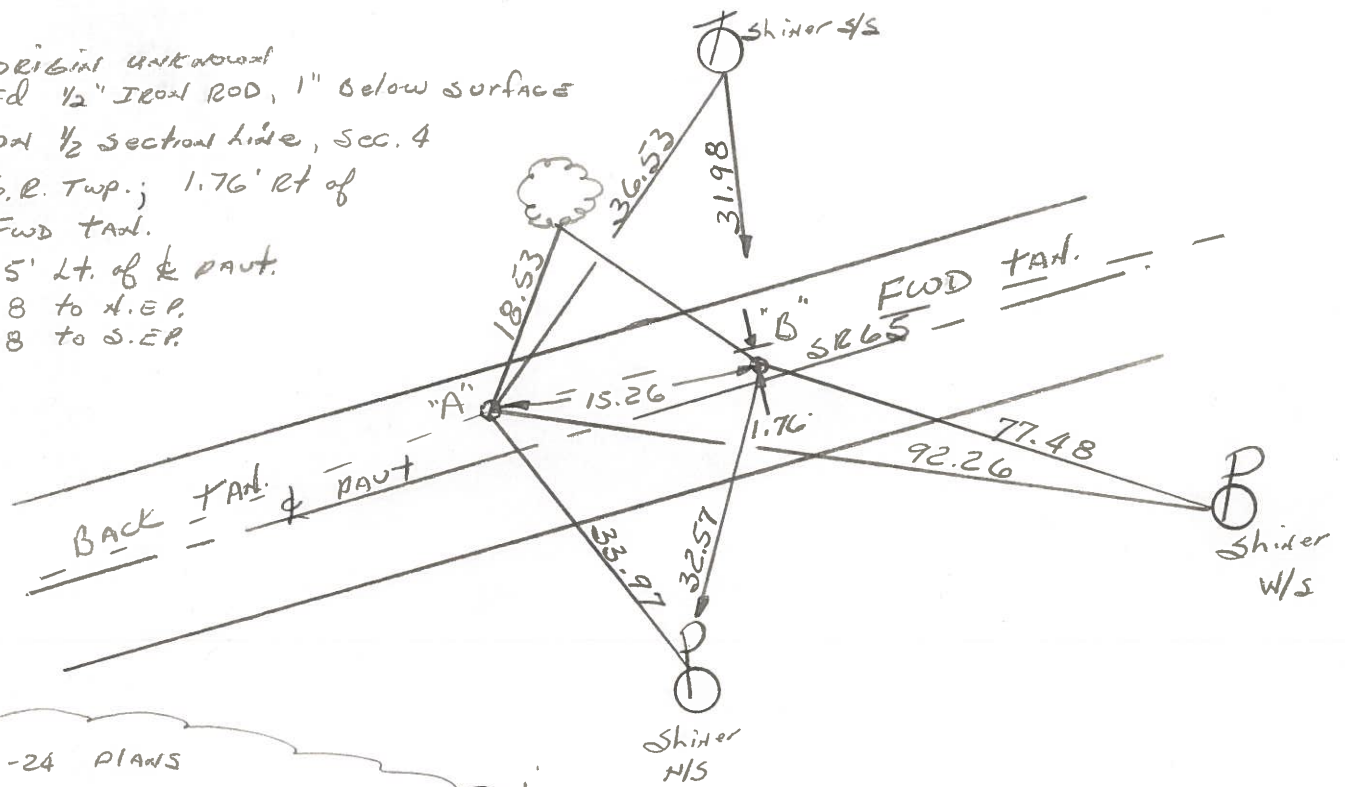 ORIGIN UNKNOWN
1/2" IRON ROD, 1" Below SurfACE
ON 1/2 Section Line, Sec. 4
R. Twp.; 1.76' Rt of
FWD tAN.
5' Lt. of ℄ PAVt.
8 to N.EP.
8 to S.EP.
Shiner S/S
36.53
31.98
18.53
FWD tAN.
"B"
SR65
"A"
15.26
1.76
77.48
92.26
BACK tAN.
℄ PAVt
33.97
32.57
P
Shiner
W/S
P
Shiner
N/S
-24 PlANS